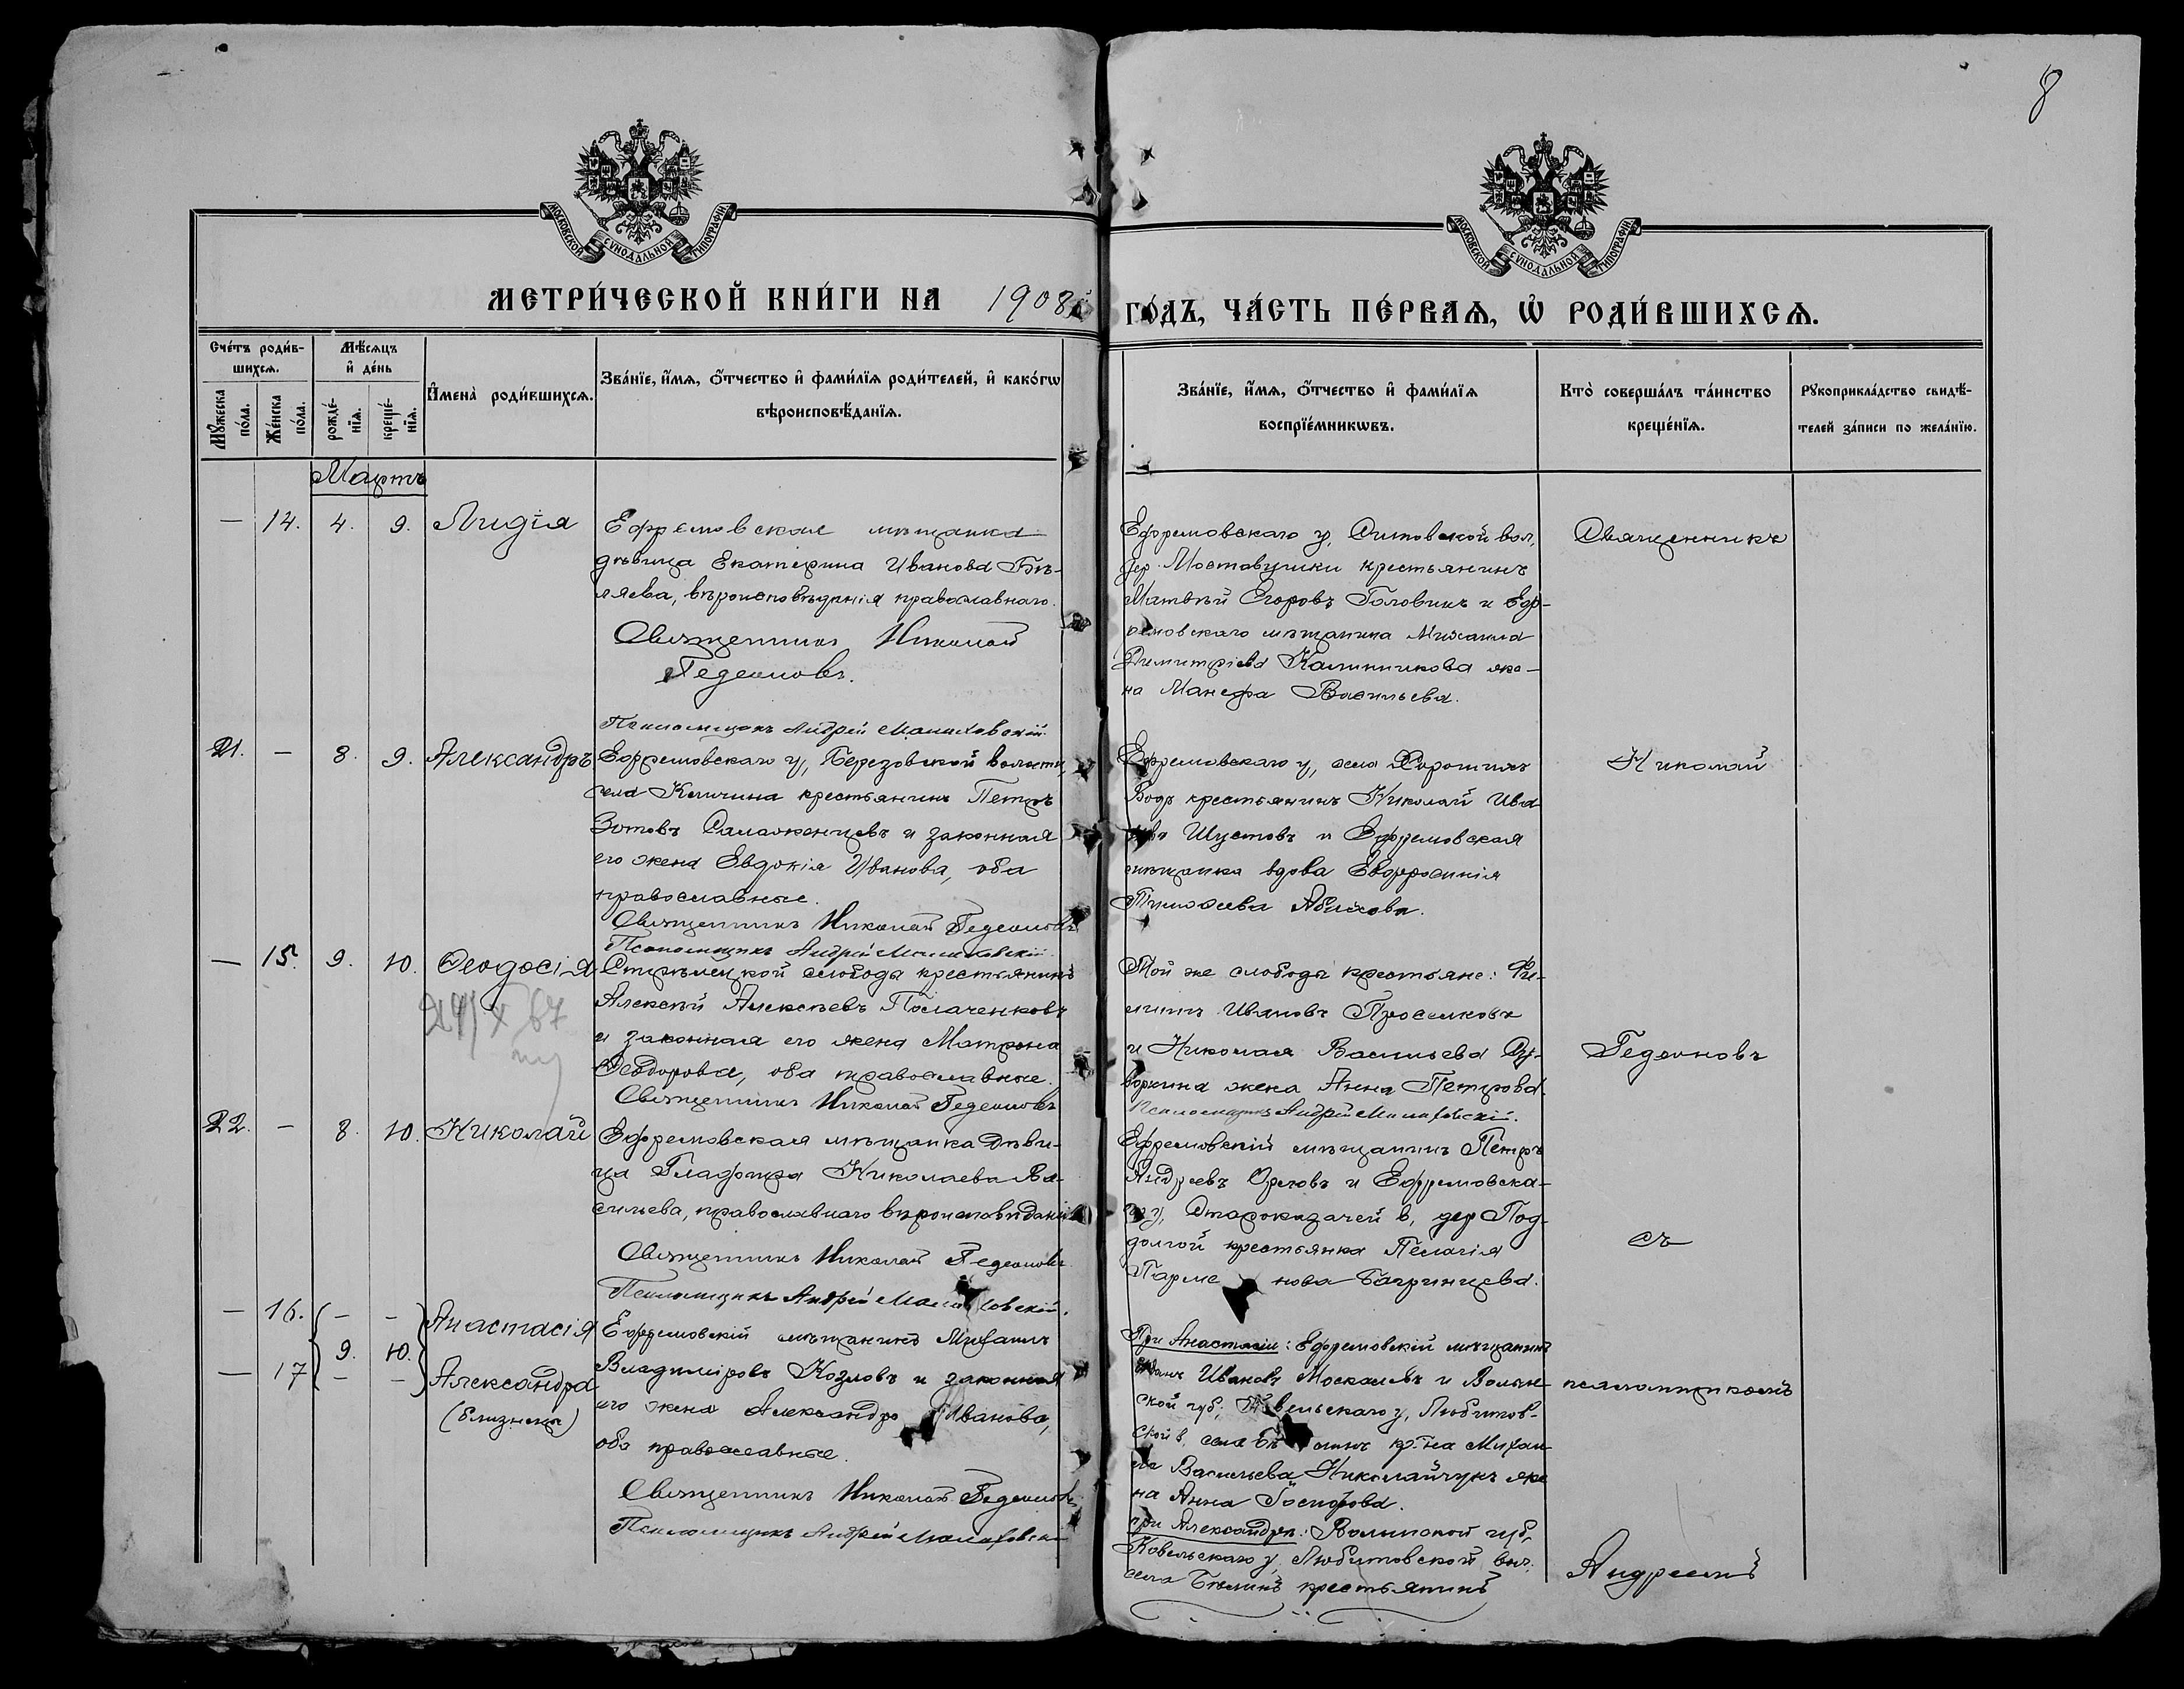 8
МОСКОВСКОЙ СѴНОДАЛЬНОЙ ТИПОГРАФІИ
МОСКОВСКОЙ СѴНОДАЛЬНОЙ ТИПОГРАФІИ
МЕТРИ́ЧЕСКОЙ КНИ́ГИ НА 1908й
ГО́ДЪ, ЧА́СТЬ ПЕ́РВАѦ, Ѽ РОДИ́ВШИХСѦ.
Сче́тъ роди́в-
шихсѧ.
Мꙋжеска по́ла.
Же́нска по́ла.
Мѣ́сѧцъ
и҆ де́нь
рожде́-
нїѧ.
креще́-
нїѧ.
И҆мена̀ роди́вшихсѧ.
Зва́нїе, и҆́мѧ, ѻ҆́тчество и҆ фами́лїѧ роди́телей, и҆ како́гѡ
вѣроисповѣ́данїѧ.
Зва́нїе, и҆́мѧ, ѻ҆́тчество и҆ фами́лїѧ
воспрїе́мникѡвъ.
Кто̀ соверша́лъ та́инство
креще́нїѧ.
Рꙋкоприкла́дство свидѣ́-
телей за́писи по жела́нїю.
Мартъ
— 14. 4. 9. Лидія
Ефремовская мѣщанка
дѣвица Екатерина Иванова Бѣ-
ляева, вѣроисповѣданія православнаго.
Священникъ Николай
Гедеоновъ.
Псаломщикъ Андрей Малиховскій.
Ефремовскаго у, Ситовской вол,
дер. Моставушки крестьянинъ
Матвѣй Егоровъ Головинъ и Еф-
ремовскаго мѣщанина Михаила
Димитріева Калинникова же-
на Манефа Васильева.
Священникъ
21. — 8. 9. Александръ
Ефремовскаго у, Березовской волости,
села Кичина крестьянинъ Петръ
Зотовъ и законная
его жена Евдокія Иванова, оба
православные.
Священникъ Николай Гедеоновъ
Псаломщикъ Андрей Малиховскій.
Ефремовскаго у, села Хорошихъ
Водъ крестьянинъ Николай Ива-
новъ Шустовъ и Ефремовская
мѣщанка вдова Евфросинія
Тимоѳеева
Николай
— 15. 9. 10. Ѳеодосія
Стрѣлецкой слободы крестьянинъ
Алексѣй Алексѣевъ Полаченковъ
и законная его жена Матрона
Ѳеодорова, оба православные.
Священникъ Николай Гедеоновъ
Той же слободы крестьяне: Фи-
липпъ Ивановъ Проселковъ
и Николая Васильева Су-
воркина жена Анна Петрова.
Псаломщикъ Андрей Малиховскій.
Гедеоновъ
22. — 8. 10. Николай
Ефремовская мѣщанка дѣви-
ца Глафира Николаева Ва-
сильева, православнаго вѣроисповѣданія
Священникъ Николай Гедеоновъ
Псаломщикъ Андрей Малиховскій.
Ефремовскій мѣщанинъ Петръ
Андреевъ Орловъ и Ефремовска-
го у, Старокозачей в, дер Под-
долгой крестьянка Пелагія
Парменова Багринцева.
съ
— 16. — — Анастасія
9. 10.
— 17 — — Александра
(близнецы)
Ефремовскій мѣщанинъ Михаилъ
Владиміровъ Козловъ и законная
его жена Александра Иванова,
оба православные.
Священникъ Николай Гедеоновъ
Псаломщикъ Андрей Малиховскій
При Анастасіи: Ефремовскій мѣщанинъ
Иванъ Ивановъ Москалевъ и Волын-
ской губ, Ковельскаго у, Любитов-
ской в, села кр-на Михаи-
ла Васильева Николайчукъ же-
на Анна
при Александрѣ: Волынской губ,
Ковельскаго у, Любитовской вол.
села Бѣлинъ крестьянинъ
псаломщикомъ
Андреемъ